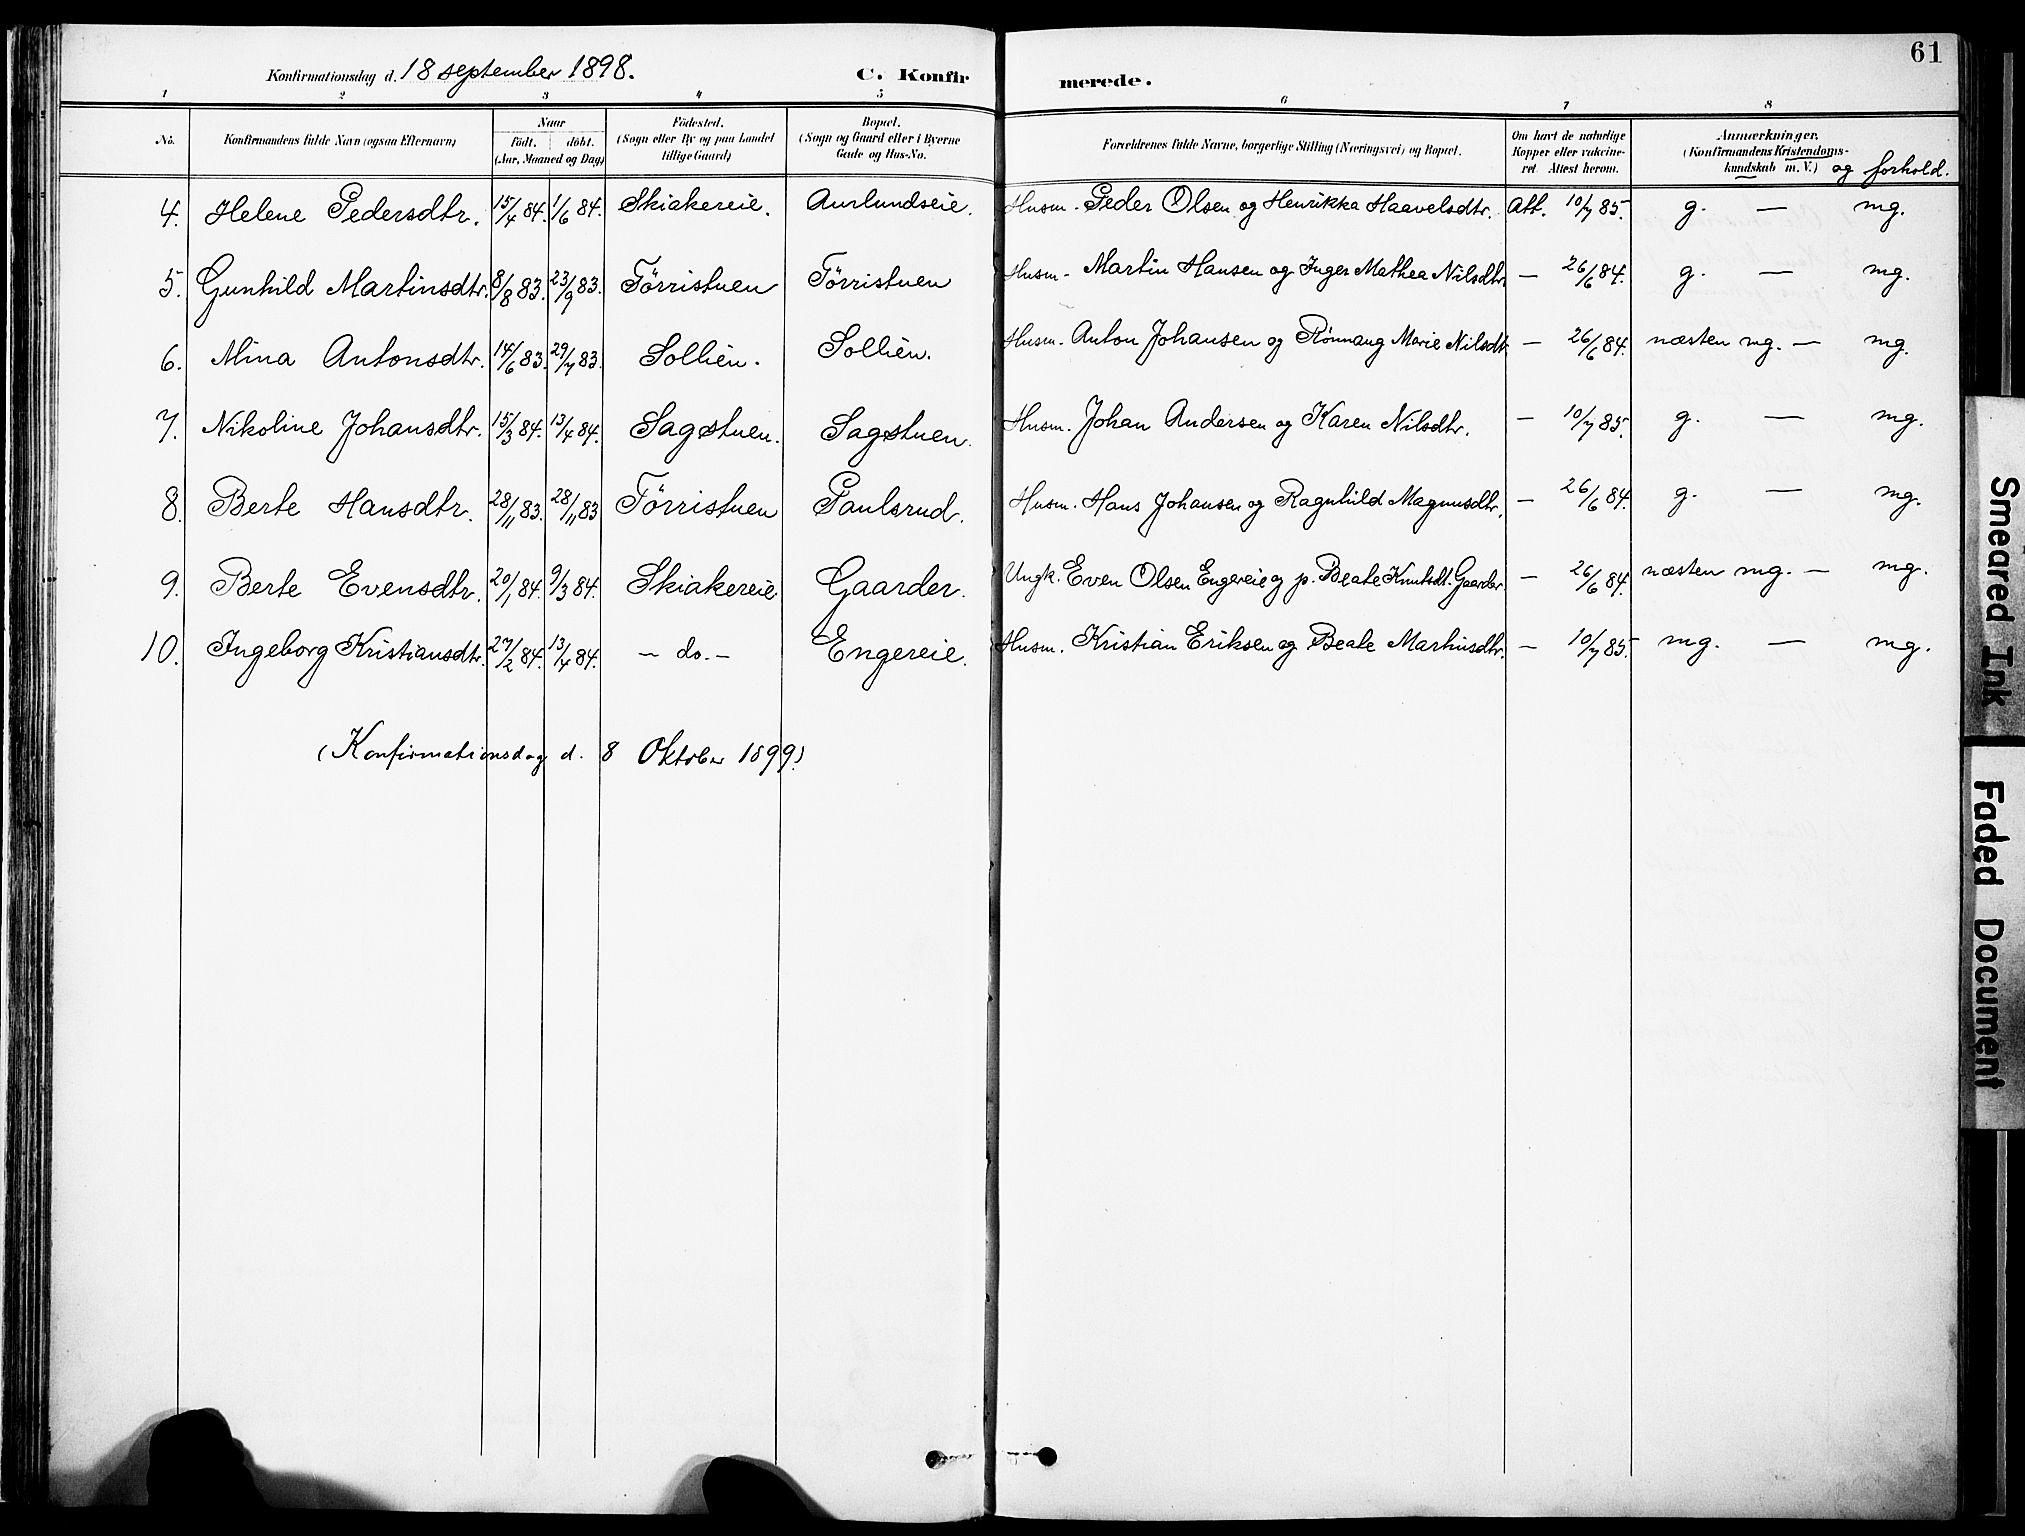 61
Konfirmationsdag d. 18 september 1898. C. Konfir merede.
1 2 3 4 5 6 7 8
No. Konfirmandens fulde Navn (ogsaa Efternavn) Naar födt. döbt. (Aar, Maaned og Dag) Födested. (Sogn eller By og paa Landet tillige Gaard) Bopæl. (Sogn og Gaard eller i Byerne Gade og Hus-No. Forældrenes fulde Navne, borgerlige Stilling (Næringsvei) og Bopæl. Om havt de naturlige Kopper eller vakcineret. Attest herom. Anmærkninger. (Konfirmandens Kristendomskundskab m. V.) og forhold.
4. Helene Pedersdtr. 15/4 84. 1/6 84. Skiakereie. Aurlundseie. Husm. Peder Olsen og Henrikka Haavelsdtr. Att. 10/7 85. g. — mg.
5. Gunhild Martinsdtr. 8/8 83. 23/9 83. Tørristuen Tørristuen Husm. Martin Hansen og Inger Mathea Nilsdtr. — 26/6 84. g. — mg.
6. Mina Antonsdtr. 14/6 83. 29/7 83. Sollien. Sollien. Husm. Anton Johansen og Rønnaug Marie Nilsdt — 26/6 84. næsten mg. — mg.
7. Nikoline Johansdtr. 15/3 84. 13/4 84. Sagstuen. Sagstuen. Husm. Johan Andersen og Karen Nilsdtr. — 10/7 85. g. — mg.
8. Berte Hansdtr. 28/11 83. 28/11 83 Tørristuen Paulsrud. Husm. Hans Johansen og Ragnhild Magnusdtr. — 26/6 84. g. — mg.
9. Berte Evensdtr. 20/1 84. 9/3 84. Skiakereie Gaarder. Ungk. Even Olsen Engereie og p. Beate Knutsdt. Gaarder. — 26/6 84. næsten mg. — mg.
10. Ingeborg Kristiansdtr. 27/2 84. 13/4 84. — do. — Engereie. Husm. Kristian Eriksen og Beate Marthisdtr. — 10/7 85. mg. — mg.
(Konfirmationsdag d. 8 Oktober 1899)
Smeared Ink
Faded Document